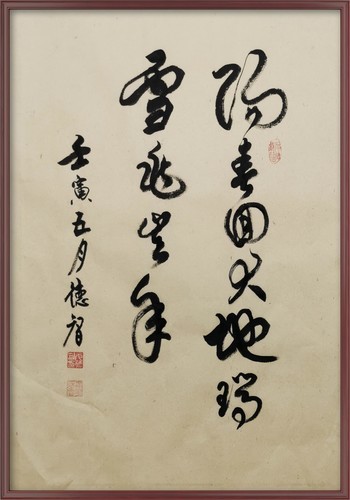 陽春回大地瑞
雪兆豐年
壬寅五月德智